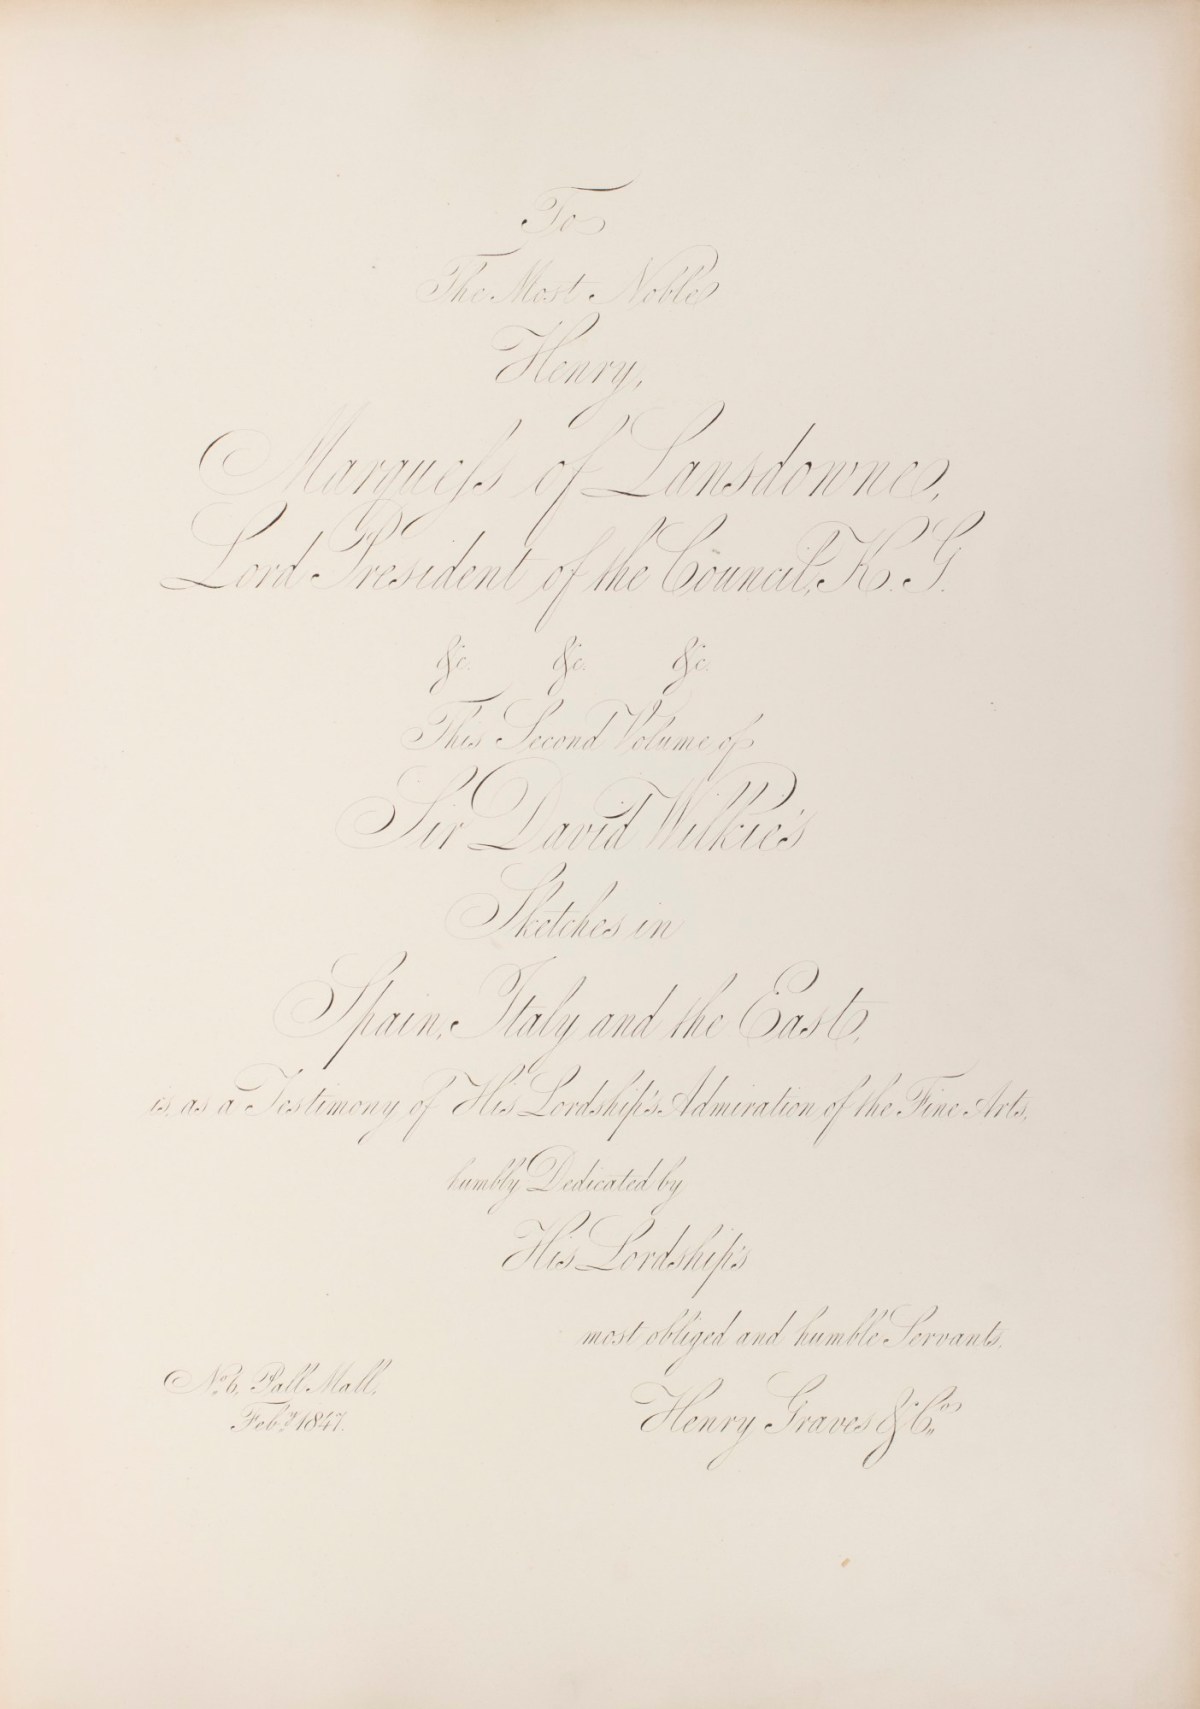 To
The Most Noble
Henry,
Marquess of Lansdowne,
Lord President of the Council, K. G.
&c. &c. &c.
This Second Volume of
Sir David Wilkie's
Sketches in
Spain, Italy and the East,
is, as a Testimony of His Lordship's Admiration of the Fine Arts,
humbly Dedicated by
His Lordship's
most obliged and humble Servants,
Henry Graves & Co.
No. 6, Pall Mall,
Feby. 1847.